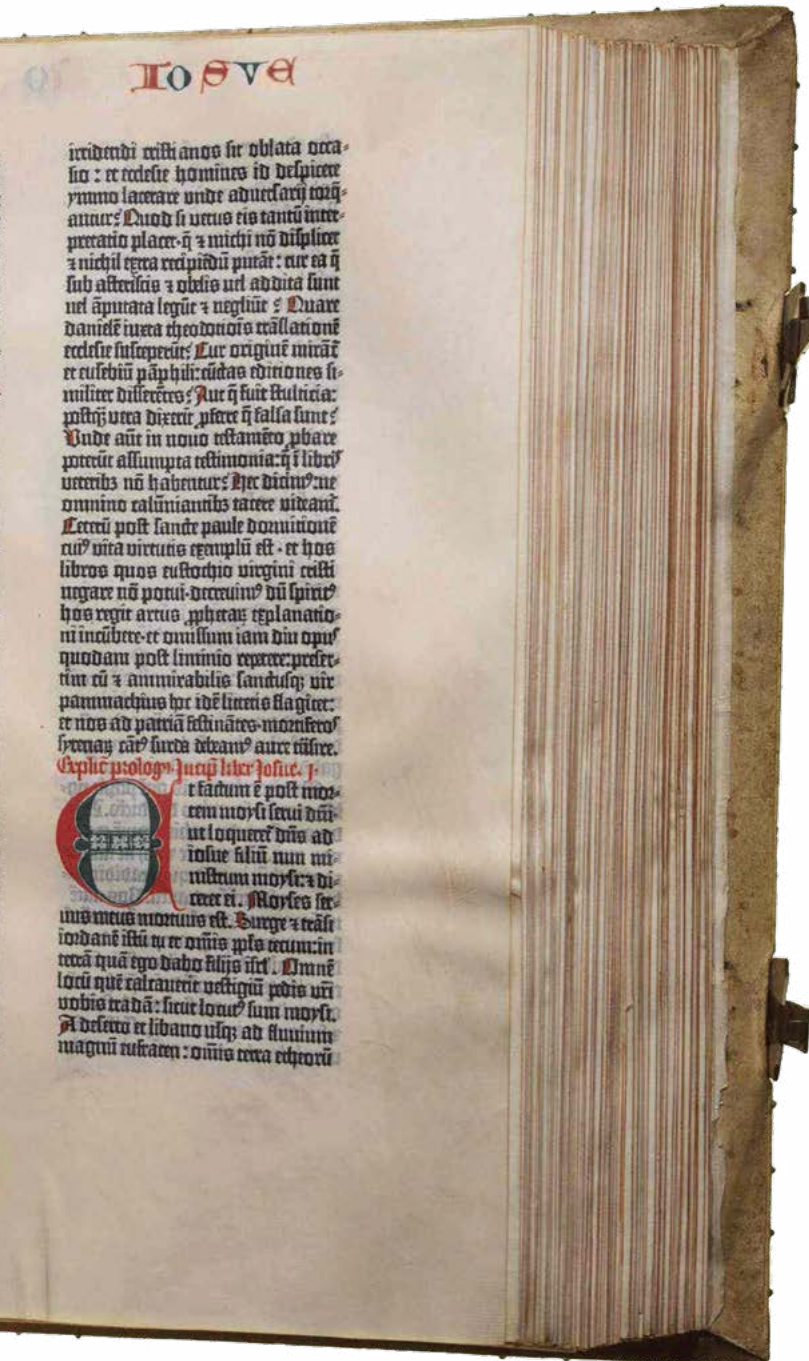 IOSVE
irridendi cristianos sit oblata occa-
sio : et ecclesie homines id despicere
ymmo lacerare unde adversarij torq̄-
antur? Quod si vetus eis tantū inter-
pretatio placet·q̄ ⁊ michi nō displicet
⁊ nichil extra recipiēdū putāt : cur ea q̄
sub astericis ⁊ obelis uel addita sunt
uel āputata legūt ⁊ negligūt ? Quare
danielē iuxta theodotiōis trāslationē
ecclesie susceperūt? Cur origenē mirāt̄
et eusebiū pāphili:cūctas editiones si-
militer differētes? Aut q̄ fuit stulticia:
postq̄ꝫ vera dixerit ꝓferre q̄ falsa sunt?
Unde aūt in nouo testamēto ꝓbare
poterūt assumpta testimonia:q̄ ī libris
veteribꝫ nō habentur? Hec dicimꝰ:ne
omnino calūniantibꝫ tacere videamꝛ.
Ceterū post sancte paule dormitionē
cuiꝰ vita virtutis exemplū est · et hos
libros quos eustochio virgini cristi
negare nō potui·decreuimꝰ dū spiritꝰ
hos regit artus ꝓphetaꝝ explanatio-
ni incūbere·et omissum iam diu opus
quodam post liminio repetere:preser-
tim cū ⁊ ammirabilis sanctusqꝫ vir
pammachius hoc idē litteris flagitet:
et nos ad patriā festinātes·mortiferos
syrenaꝝ cātꝰ surda debeamꝰ aure trāsire.
Explic̄ prologꝰ. Incip̄ liber Josue. j·
Et factum ē post mor-
tem moysi serui dn̄i·
ut loqueret̄ dn̄s ad
iosue filiū nun mi-
nistrum moysi:⁊ di-
ceret ei. Moyses ser-
uus meus mortuus est. Surge ⁊ trāsi
iordanē istū tu et om̄is ppl̄s tecum:in
terrā quā ego dabo filijs isrl̄. Omnē
locū quē calcauerit vestigiū pedis vr̄i
vobis tradā: sicut locutꝰ sum moysi.
A deserto et libano usqꝫ ad fluuium
magnū eufraten : om̄is terra etheorū